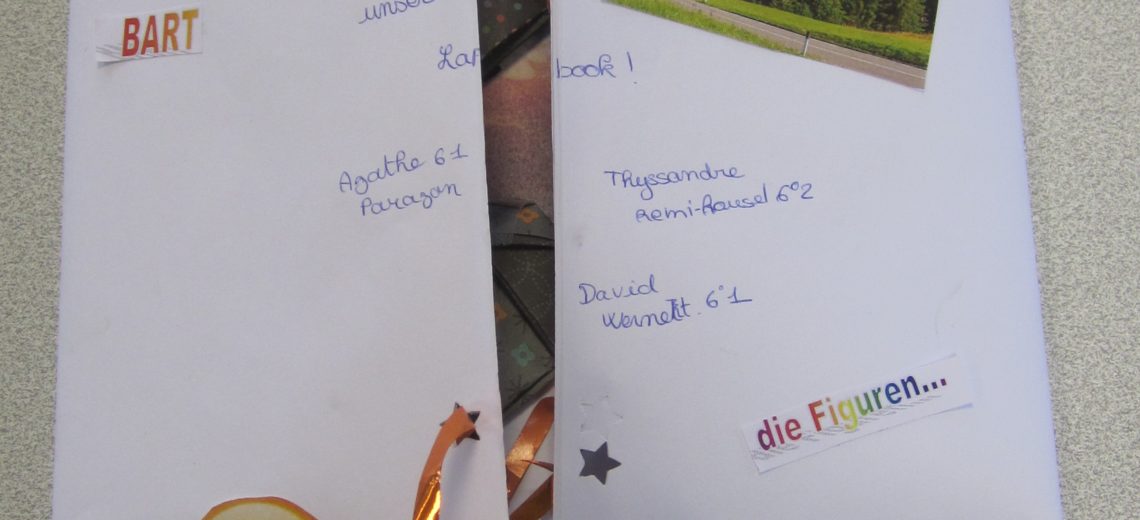 BART
unser
Lap book !
Agathe 6 1
Parazon
Thyssandre
Remi-Rousel 6°2
David
6°1
die Figuren...